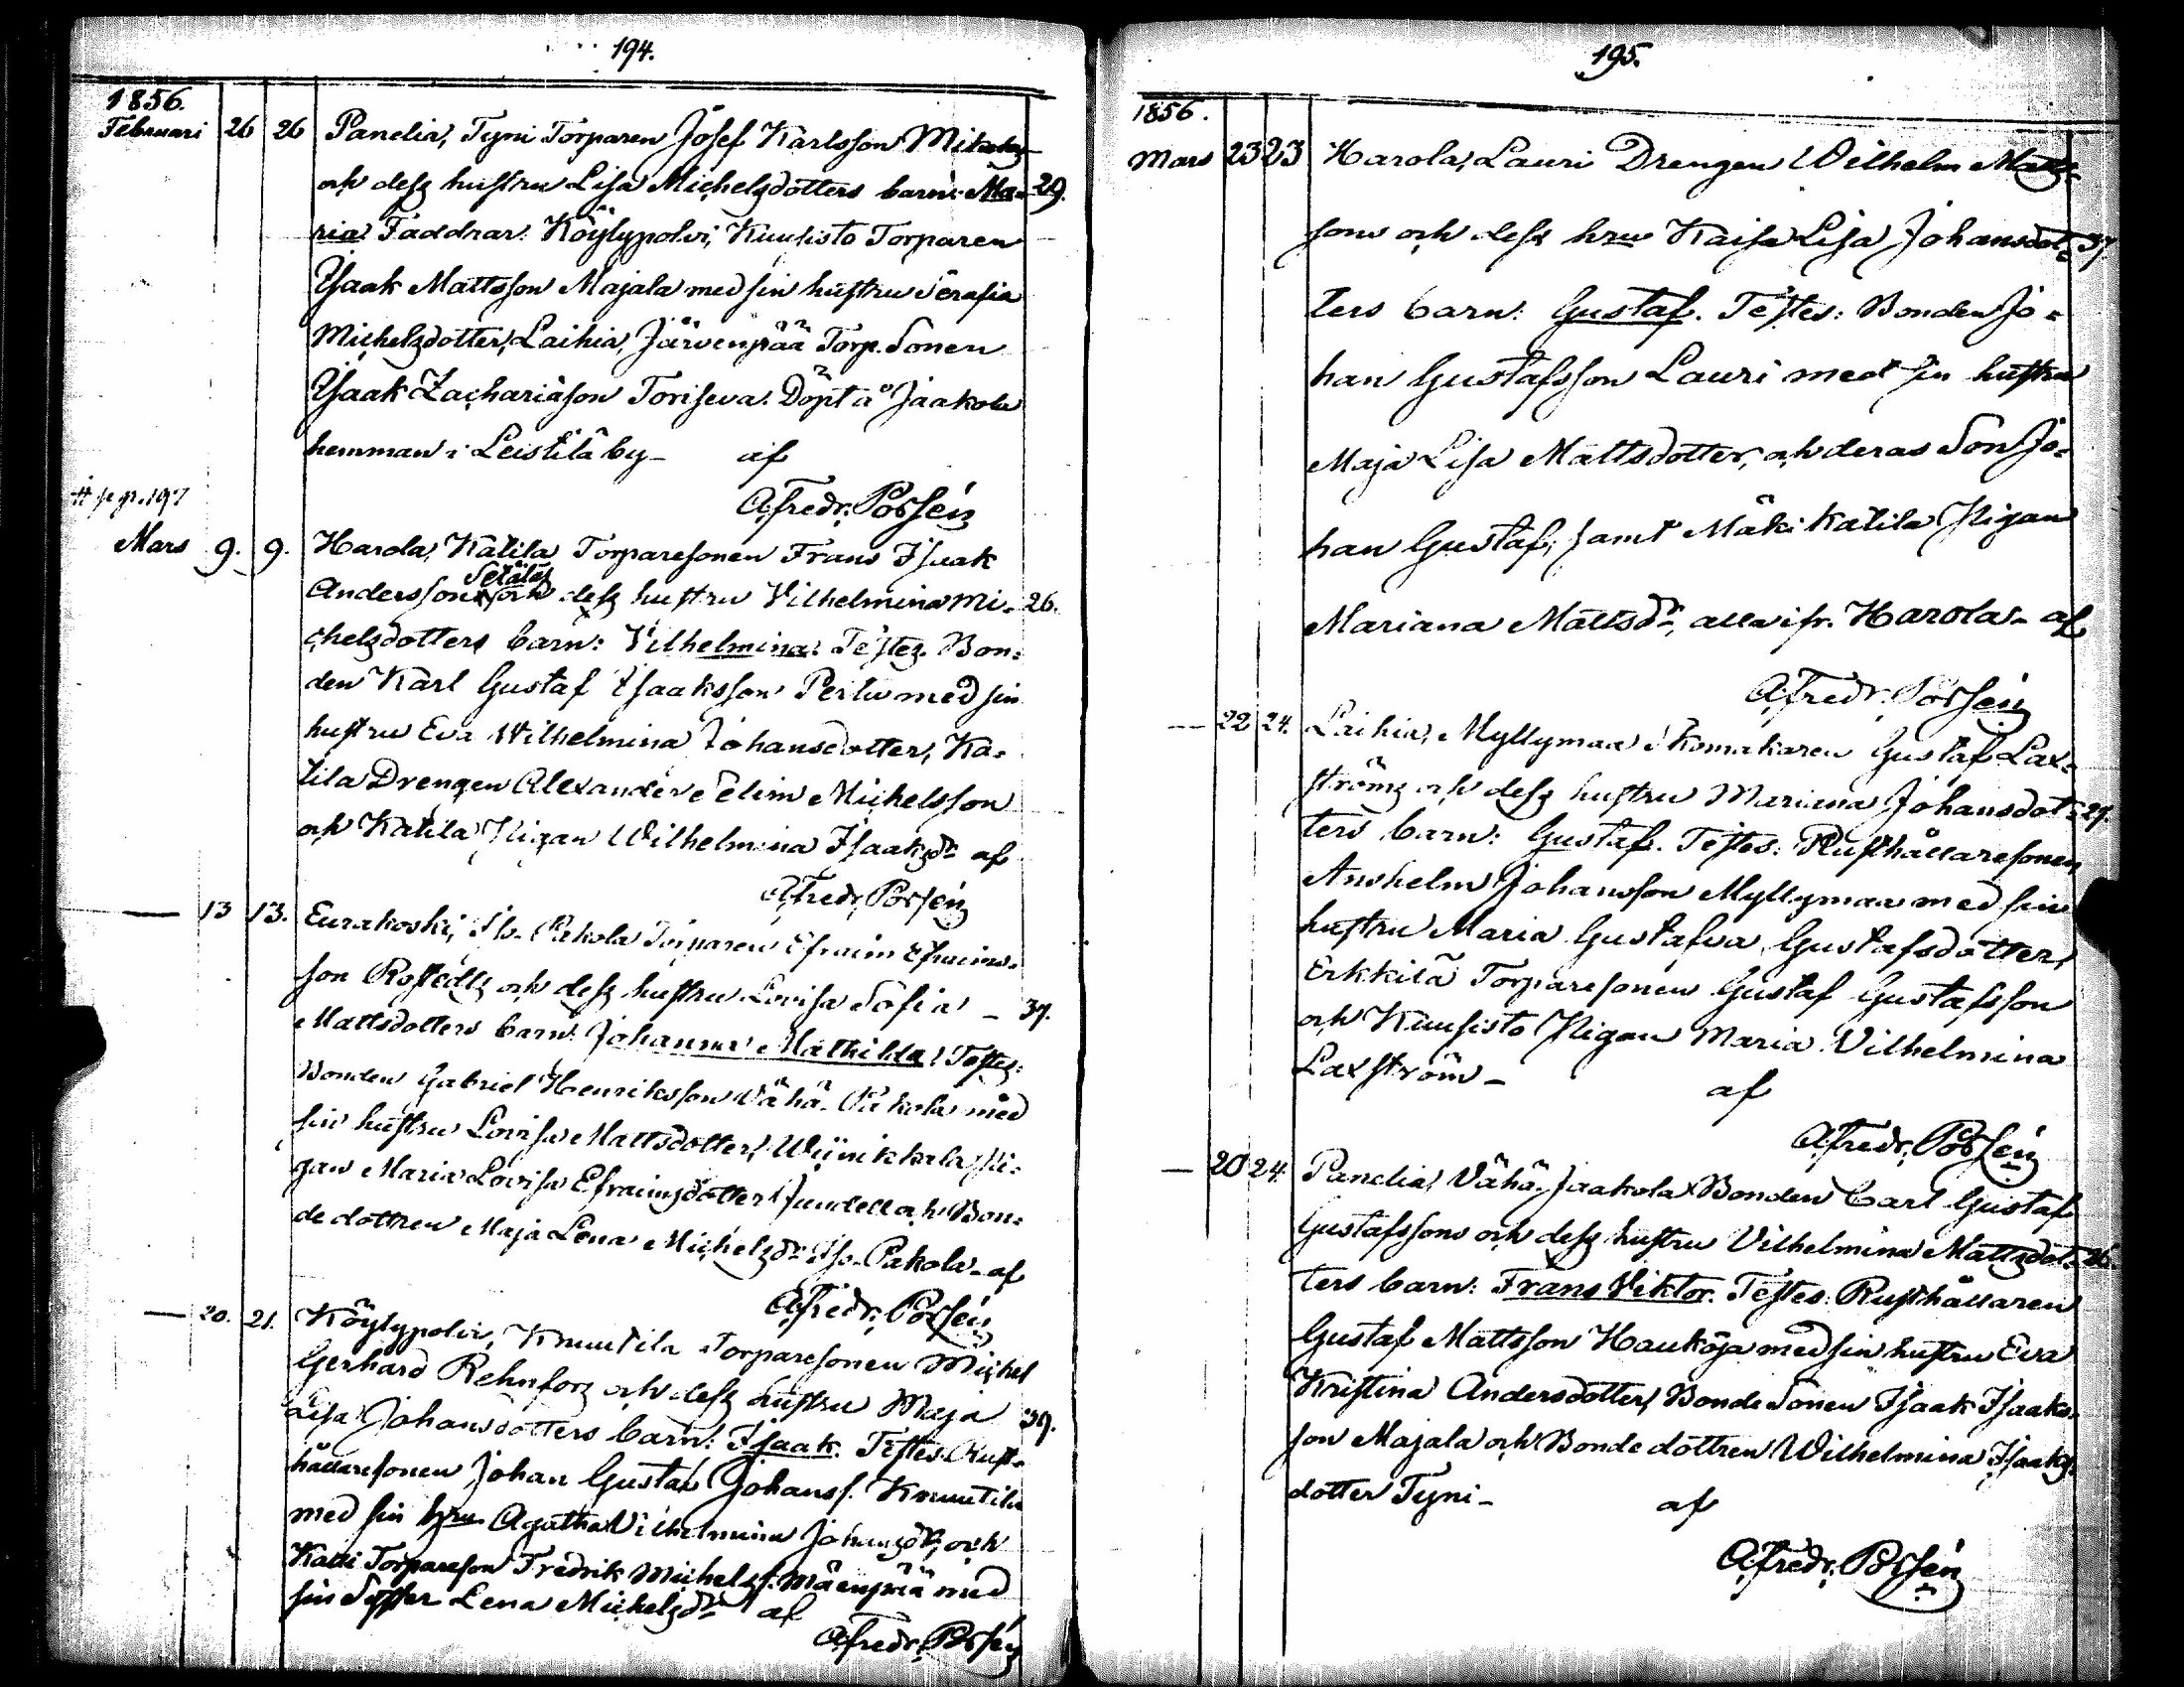 194.
1856.
Februari 26 26 Panelia, Tyni Torparen Josef Karlsson
och dess hustru Lisa Michelsdotters barn: Ma- 29.
ria Faddrar: Köylypolvi, Kuusisto Torparen
Isaak Mattsson Majala med sin hustru Serafia
Michelsdotter, Laihia, Järvenpää Torp. Sonen
Isaak Zachariäson Toriseva. Döpt å Jaakola
hemman i Leistilä by - af
A. Fredr. Porsén
197
Mars 9. 9. Harola, Katila Torparesonen Frans Isaak
Setäläs
Andersson och dess hustru Vilhelmina Mi- 26.
chelsdotters barn: Vilhelmina. Testes. Bon-
den Karl Gustaf Isaaksson Perttu med sin
hustru Eva Wilhelmina Johansdotter, Ka-
tila Drengen Alexander Selim Michelsson
och Katila Pigan Wilhelmina Isaaksdr af
A. Fredr. Porsén
— 13 13. Eurakoski, Iso-Pakola Torparen Efraim Efraims-
son Rostedts och dess hustru Lovisa Sofia - 37.
Mattsdotters barn: Johanna Mathilda! Testes:
Bonden Gabriel Henriksson Vähä-Pakola med
sin hustru Lovisa Mattsdotter, Wiinikkala Pi-
gan Maria Lovisa Efraimsdotter Sundell och Bon-
dedottren Maja Lena Michelsdr Iso-Pakola - af
A. Fredr. Porsén
— 20. 21. Köylypolvi, Knuutila Torparesonen Michel
Gerhard Rehnfors och dess hustru Maja
Lisa Johansdotters barn: Isaak. Testes: Rust- 39.
hållaresonen Johan Gustaf Johanss. Knuutila
med sin hru Agatha Vilhelmina Johansdr, och
Katti Torpareson Fredrik Michelss. Mäenpää med
sin Syster Lena Michelsdr af
A. Fredr. Porsén
195.
1856.
Mars 23 23 Harola, Lauri Drengen Wilhelm Matts-
sons och dess hru Kaisa Lisa Johansdot- 37.
ters barn: Gustaf. Testes: Bonden Jo-
han Gustafsson Lauri med sin hustru
Maja Lisa Mattsdotter, och deras Son Jo-
han Gustaf, samt Mäki Katila Pigan
Mariana Mattsdr, alla ifr. Harola - af
A. Fredr. Porsén
— 22 24. Laihia, Myllymaa Skomakaren Gustaf Lax-
ströms och dess hustru Mariana Johansdot- 29.
ters barn: Gustaf. Testes: Rusthållaresonen
Anshelm Johansson Myllymaa med sin
hustru Maria Gustafva Gustafsdotter,
Erkkilä Torparesonen Gustaf Gustafsson
och Kuusisto Pigan Maria Vilhelmina
Laxström - af
A. Fredr. Porsén
— 20 24. Panelia, Vähä-Jaakola Bonden Carl Gustaf
Gustafssons och dess hustru Vilhelmina Mattsdot- 26.
ters barn: Frans Viktor. Testes: Rusthållaren
Gustaf Mattsson Haukoja med sin hustru Eva
Kristina Andersdotter, Bonde Sonen Isaak Isaaks-
son Majala och Bonde dottren Wilhelmina Isaaks-
dotter Tyni - af
A. Fredr. Porsén